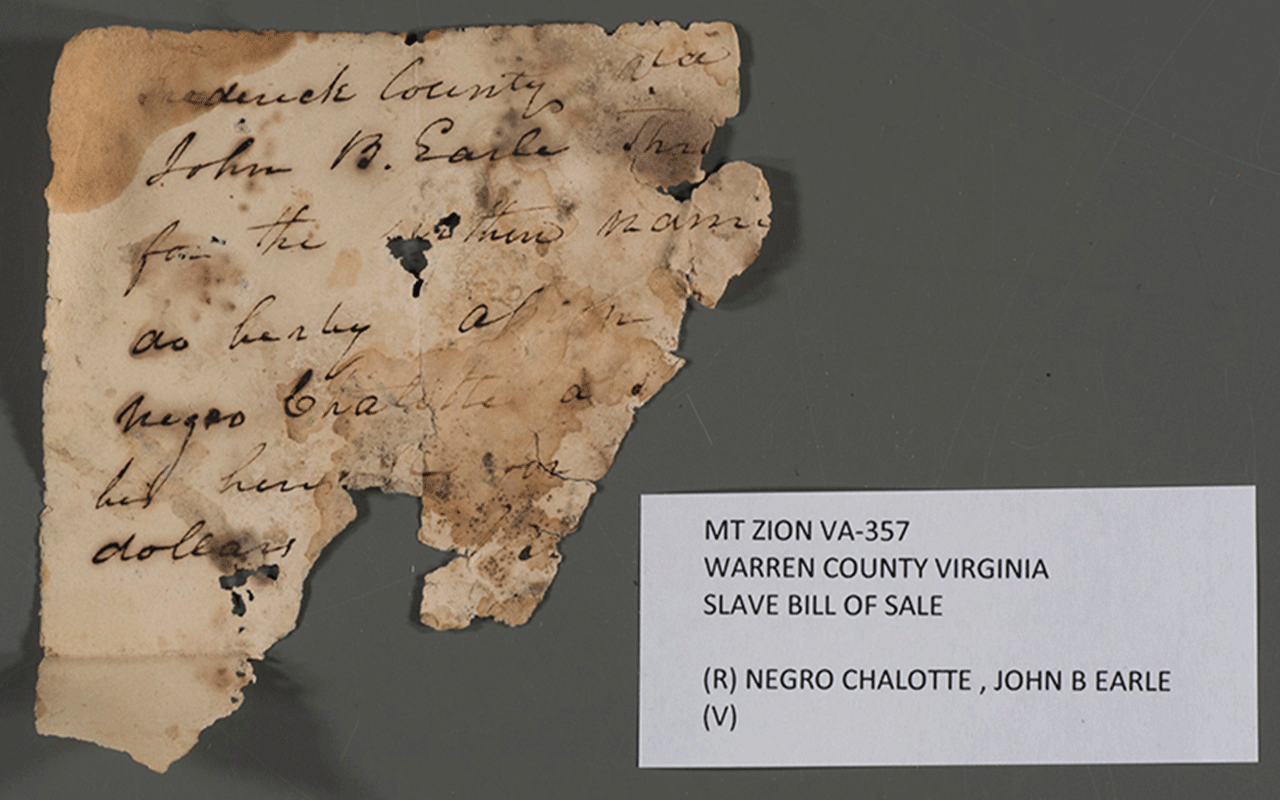 Frederick County
John B. Earle
for the within name
do herby
negro Chalotte
his
dollars
MT ZION VA-357
WARREN COUNTY VIRGINIA
SLAVE BILL OF SALE
(R) NEGRO CHALOTTE , JOHN B EARLE
(V)